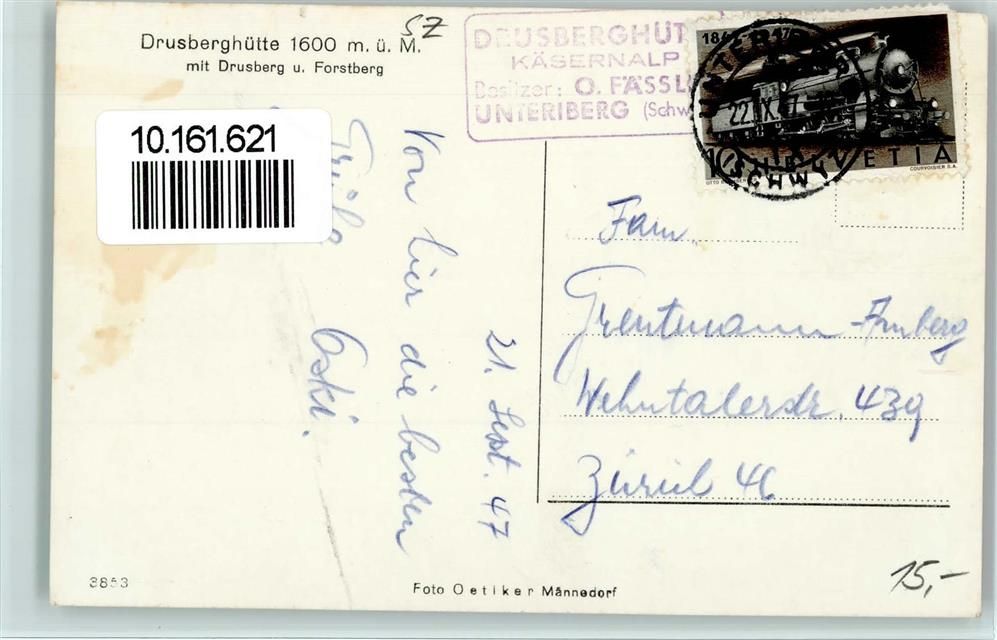 Drusberghütte 1600 m. ü. M.
mit Drusberg u. Forstberg
SZ
DRUSBERGHÜT
KÄSERNALP
Besitzer: O. FÄSSL
UNTERIBERG (Schw
1847
22. IX. 47
(SCHWYZ)
10 HELVETIA
COURVOISIER S.A.
10.161.621
21. Sept. 47
Von hier die besten
Grüße
Oski.
Fam.
Grentmann-Amberg
Wehntalerstr. 439
Zürich 46
3853
Foto Oetiker Männedorf
15,-